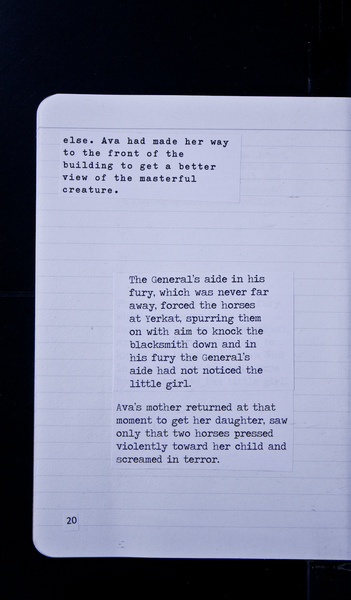 else. Ava had made her way
to the front of the
building to get a better
view of the masterful
creature.
The General's aide in his
fury, which was never far
away, forced the horses
at Yerkat, spurring them
on with aim to knock the
blacksmith down and in
his fury the General's
aide had not noticed the
little girl.
Ava's mother returned at that
moment to get her daughter, saw
only that two horses pressed
violently toward her child and
screamed in terror.
20